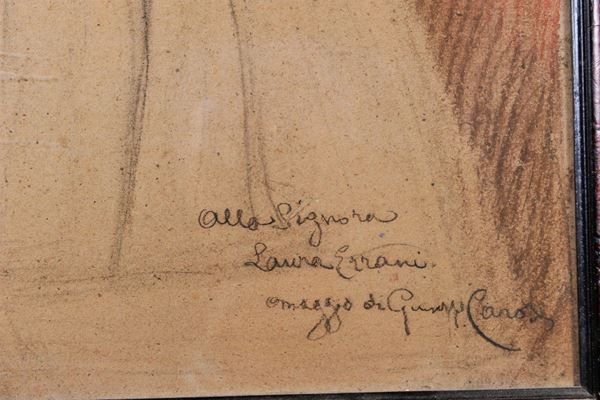 Alla Signora
Laura Errani.
omaggio di Giusep. Carosi